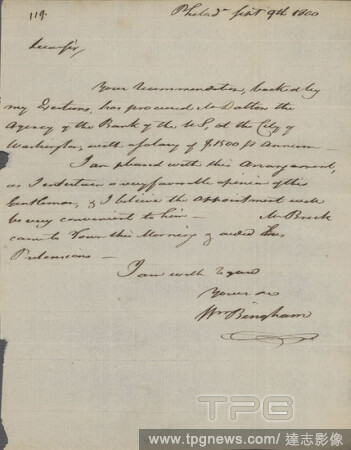 119.
Philadª Sept 9th 1800
Dear Sir,
Your recommendation, backed by
my Exertions, has procured Mr Dalton the
Agency of the Bank of the US, at the City of
Washington, with a salary of $1500 pr Annum—
I am pleased with this Arrangement,
as I entertain a very favorable opinion of this
Gentleman, & I believe the appointment will
be very convenient to him — Mr Breck
came to Town this Morning & aided his
Pretensions —
I am with regard
Yours &c
Wm Bingham
TPG
www.tpgnews.com / 達志影像